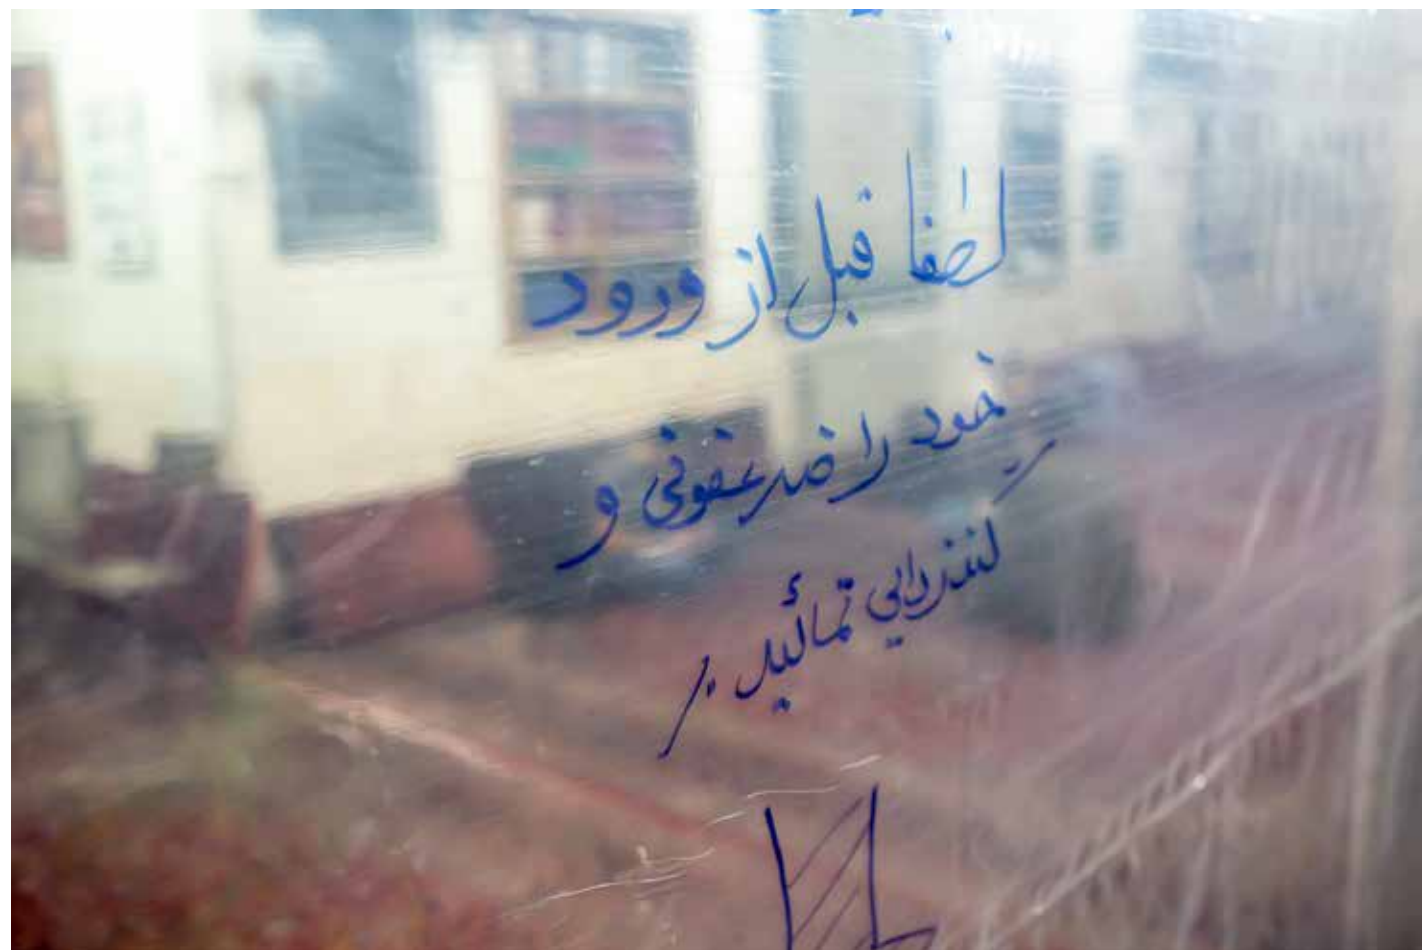 لطفا قبل از ورود
خود را ضدعفونی و
گندزدایی نمائید.